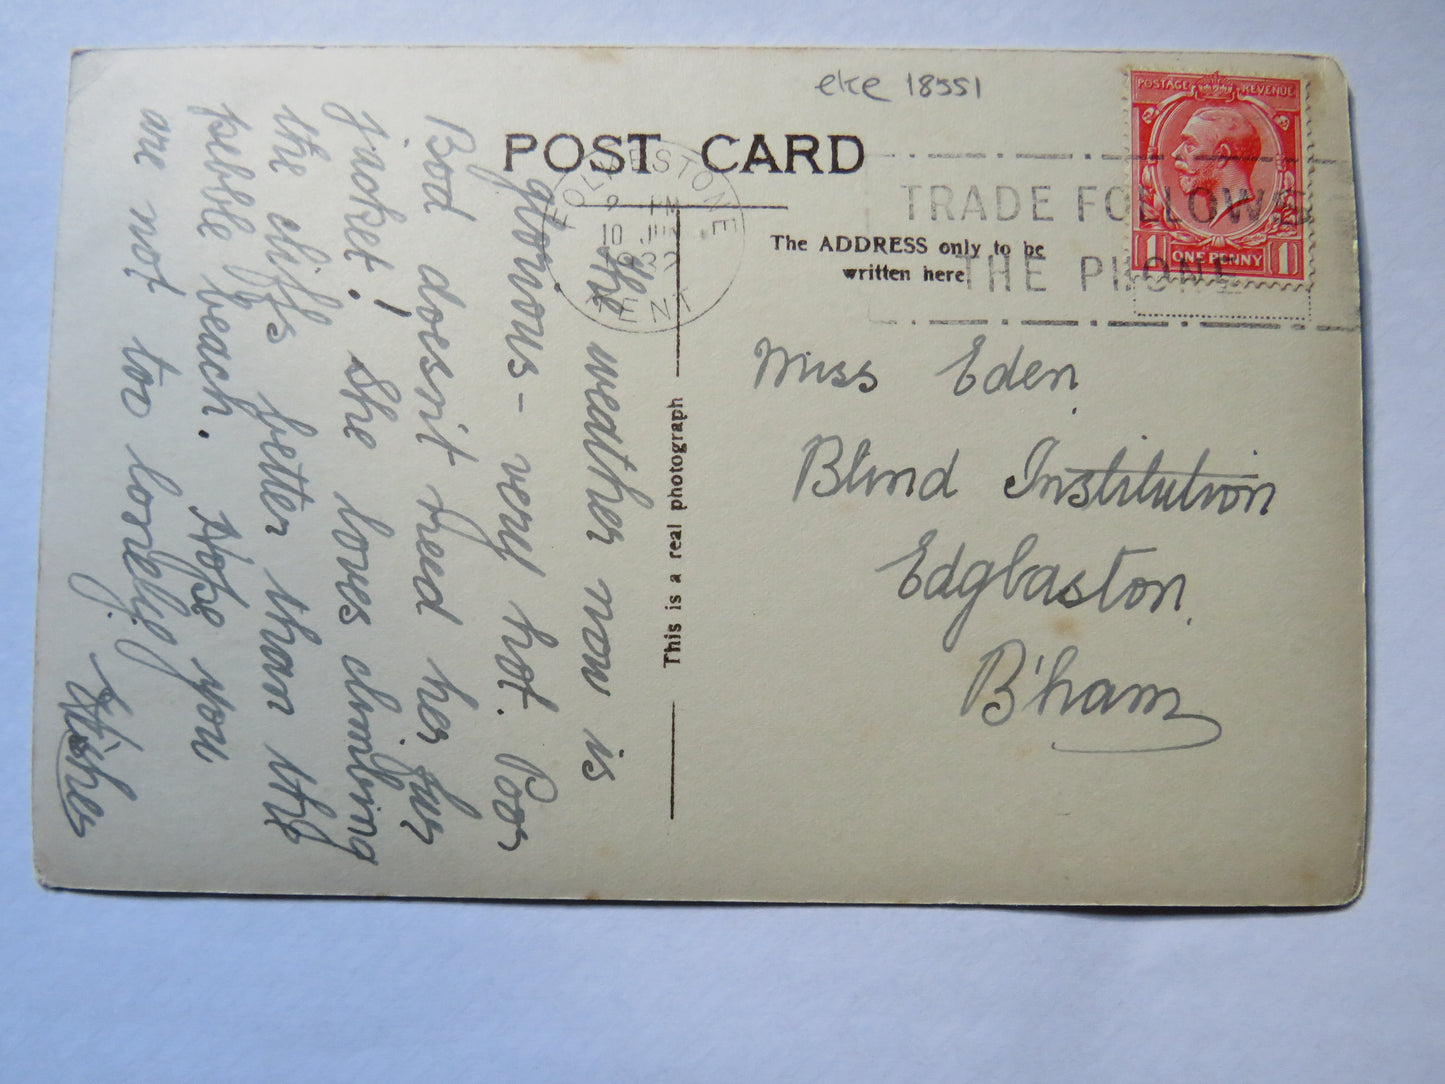 eke 18551
POST CARD
FOLKESTONE
10 JUN
KENT
TRADE FOLLOWS
THE PHONE
POSTAGE REVENUE
1 ONE PENNY 1
The ADDRESS only to be
written here
This is a real photograph
Miss Eden,
Blind Institution
Edgbaston,
B'ham
The weather now is
glorious - very hot. Poor
Bod doesn't need her fur
jacket! She loves climbing
the cliffs better than the
pebble beach. Hope you
are not too lonely!